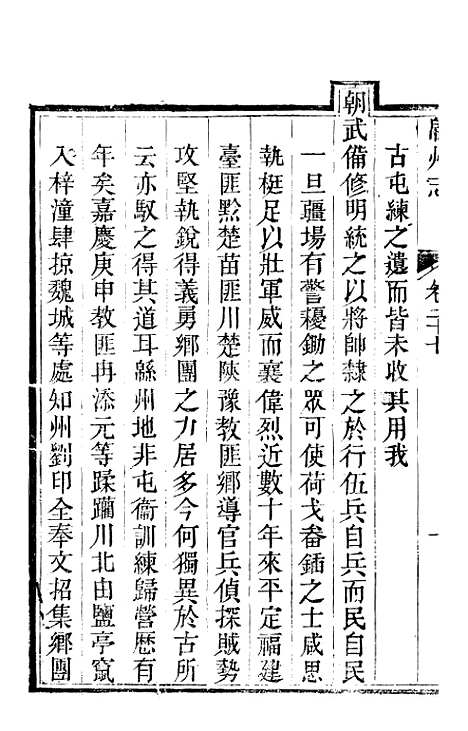 州志
卷二十七
古屯練之遺而皆未收其用我
朝武備修明統之以將帥隸之於行伍兵自兵而民自民
一旦疆場有警耰鋤之眾可使荷戈畚鍤之士咸思
執梃足以壯軍威而襄偉烈近數十年來平定福建
臺匪黔楚苗匪川楚陝豫教匪鄉導官兵偵探賊勢
攻堅執銳得義勇鄉團之力居多今何獨異於古所
云亦馭之得其道耳緜州地非屯衞訓練歸營歷有
年矣嘉慶庚申教匪冉添元等蹂躪川北由鹽亭竄
入梓潼肆掠魏城等處知州劉印全奉文招集鄉團